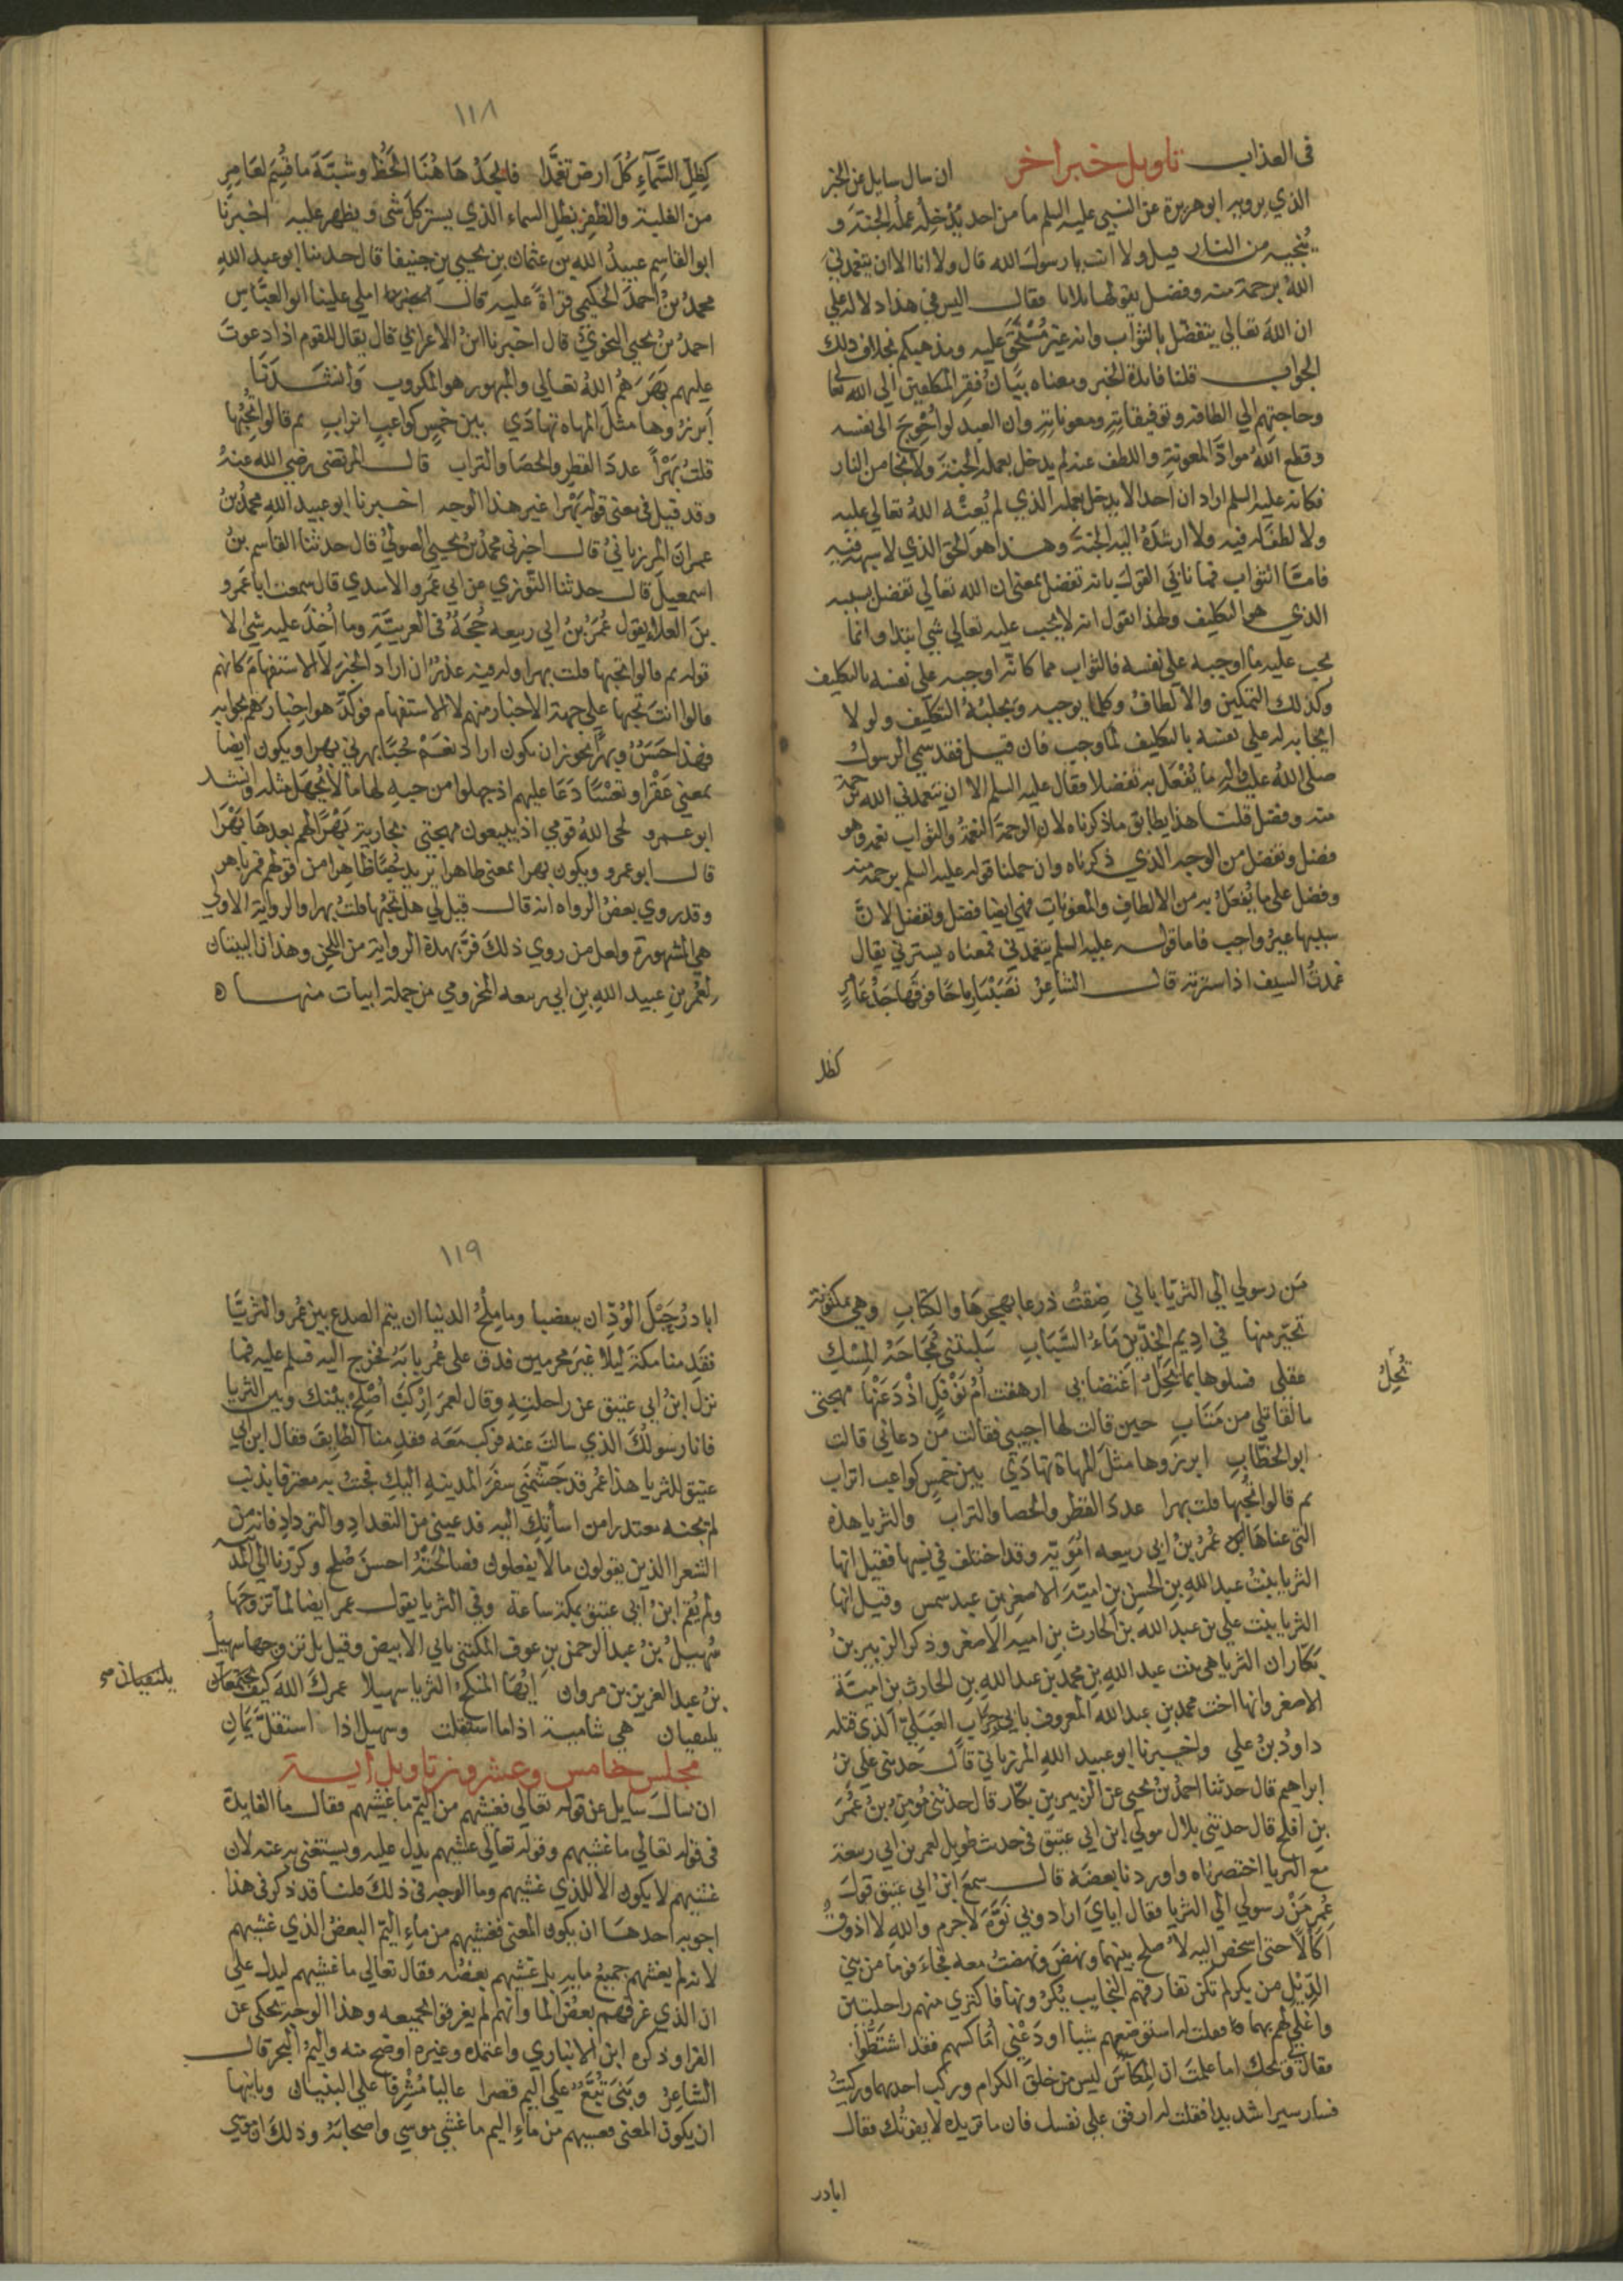 في العذاب تاويل خبر اخر ان سال سايل عن الخبر
الذي يرويه ابو هريرة عن النبي عليه السلم ما من احد يُدْخِلُه عمله الجنة و
يُنجيه من النار قيل ولا انت يا رسول الله قال ولا انا الا ان يتغمدني
اللهُ برحمة منه وفضل يقولها ثلاثا فقال اليس في هذا دلالة علي
ان الله تعالي يتفضل بالثواب وانه غير مُسْتَحَق عليه ومذهبكم بخلاف ذلك
الجواب قلنا فائدة الخبر ومعناه بَيَانُ فقر المكلفين الي الله تعالي
وحاجتهم الي الطافه وتوفيقاته ومعوناته وان العبد لو اُخْرِجَ الى نفسه
وقطع الله موادَّ المعونة واللطف عنه لم يدخل بعمله الجنة ولا نجا من النار
فكانه عليه السلم اراد ان احدا لا يدخل بعمله الذي لم يُعِنْه اللهُ تعالي عليه
ولا لطف له فيه ولا ارشدَهُ اليه الجنة وهذا هو الحق الذي لا شبهة فيه
فامّا الثواب فما نابَي القول بانه تفضل بمعني ان الله تعالي تفضل بسببه
الذي هو التكليف ولهذا نقول انه لا يجب عليه تعالي شي ابتدا وانما
يجب عليه ما اوجبه علي نفسه فالثواب مما كانَ اوجبه علي نفسه بالتكليف
وكذلك التمكين والالطافُ وكلما يوجبه ويجلبُهُ التكليف ولولا
ايجابه له علي نفسه بالتكليف لما وجب فان قيل فقد سمي الرسولُ
صلي الله عليه واله ما يُفْعَل به تفضلا فقال عليه السلم الا ان يتغمدني الله برحمة
منه وفضل قلنا هذا يطابق ما ذكرناه لان الرحمة النعمةُ والثواب نعمة وهو
فضل وتفضل من الوجه الذي ذكرناه وان حملنا قوله عليه السلم برحمة منه
وفضل علي ما يُفعَلُ به من الالطافِ والمعونات فهي ايضا فضل وتفضل لانَّ
سببها غيرُ واجب فاما قوله عليه السلم يتغمدني فمعناه يسترني يقال
غمدتُ السيف اذا سترته قال الشاعرُ نَصَبْنَا رِماحًا فوقَها جَدُّ عَامِرٍ
كظل
١١٨
كَظِلّ السَّمآءِ كُلَ ارض تغمَّدا فالجَدُّ هَاهُنَا الحَظُّ وشبَّهَ ما قُسِمَ لعَامِرٍ
من الغلبة والظفر بظل السماء الذي يستر كلَّ شي ويظهر عليه اخبرنا
ابو القاسم عبيدُ الله بن عثمان بن يحيي بن جنيقا قال حدثنا ابو عبد اللهِ
محمدُ بنُ احمد الحكيمي قراةً عليه قال املي علينا ابو العبّاس
احمدُ بنُ يحيي النحويُّ قال اخبرنا ابنُ الاعرابي قال يقال للقوم اذا دعوتَ
عليهم بَهَرَهُمُ اللهُ تعالي والمبهور هو المكروب وَانشدنَا
اَبرزوها مثلَ المهاه تهادَي بين خمسٍ كواعبٍ اتراب ثم قالوا تُحِبُّها
قلتُ بَهْراً عددَ القطرِ والحصَا والتراب قال المرتضي رضي الله عنهُ
وقد قيل في معني قوله بَهْرا غير هذا الوجه اخبرنا ابو عبيد اللهِ محمدُ بنُ
عمرانَ المرزبانيُ قال اخبرني محمدُ بنُ يحيي الصوليُ قال حدثنا القاسم بنُ
اسمعيلَ قال حدثنا التَّوزي عن ابي عَمرو الاسدي قال سمعتُ ابا عَمرو
بنَ العلاء يقول عُمَرُ بنُ ابي ربيعه حُجَةٌ في العربيَّةِ وما اُخِذَ عليه شي الا
قوله ثم قالوا تحبها قلت بهرا وله فيه عذرٌ ان اراد الخبرَ لا الاستفهامَ كانهم
قالوا انتَ تحبها علي جهةِ الاخبار منهم لا الاستفهام فوكَّد هو اخبارَهُم بجوابه
فهذا حَسَنٌ وبهرًا يجوز ان يكون اراد نَعَمْ حُبًّا بهرني بهرا ويكون ايضا
بمعني عَقْرًا وتَعْسًا دَعَا عليهم اذ جهلوا من حبه لها ما لا يُجهَل مثله وانشد
ابو عمرو لحي اللهُ قومي اذ يبيعون مهجتي بجارية بَهْرًا لهم بعدها بَهْرَا
قال ابو عمرو ويكون بهرا بمعني ظاهرا تريد حُبًا ظاهِرا من قولهم قمر باهر
وقد روي بعضُ الرواه انه قال قيل لي هل تحبُّها قلتُ بهرا والرواية الاولي
هي المشهورة ولعل من روي ذلكَ فرَّ بهذه الرواية من اللحن وهذا ان البيتان
لعُمَر بن عبيد اللهِ بن ابي ربيعه المخزومي من جملة ابيات منها
مَن رسولي الي الثريّا باني ضِقتُ ذرعا بهجرهَا والكتابِ وهي مكنونة
تحيّر منها في اديم الخدّين مَاءُ الشَّبَابِ سَلبتني مُجَاجَةُ المِسْك
عقلي فسلوها بما تُحِلُّ اغتصابي ارهقت اُمُ نَوْفلٍ اذْ دَعَتْها مهجتي
ما لقاتلي من مَتَابِ حين قالت لها اجيبي فقالت مَن دعاني قالت
ابو الخطّابِ ابرزوها مثلَ المهاة تهادَي بين خمسٍ كواعب اتراب
ثم قالوا تُحبُّها قلت بهرا عددَ القطر والحصا والتراب والثريا هذه
التي عناهَا عُمَرُ بنُ ابي ربيعه امَوِيّة وقد اختلف في نسبها فقيل انها
الثريا بنتُ عبدِ اللهِ بن الحرثِ بن اميّةَ الاصغرِ بن عبد شمس وقيل انها
الثريا بنت علي بن عبد الله بن الحارث بن اميه الاصغر وذكر الزبير بنُ
بَكّار ان الثريا هي بنت عبد الله بن محمد بن عبد اللهِ بن الحارث بن اميّة
الاصغر وانها اخت محمد بن عبد الله المعروف بابي جرابٍ العَبَلَيّ الذي قتله
داودُ بنُ علي واخبرنا ابو عبيد اللهِ المرزباني قال حدثني علي بنُ
ابراهيم قال حدثنا احمدُ بنُ يحيي عن الزبير بن بكّار قال حدثني مُؤمِنُ بنُ عُمَرَ
بن افلح قال حدثني بلال مولي ابن ابي عتيق في حديث طويل لعمر بن ابي ربيعة
مع الثريا اختصرناه واوردنا بعضَه قال سمعَ ابنُ ابي عتيق قولَ
عُمر مَنْ رسولي الي الثريا فقال ايايَ اراد وبي نَوَّهَ لا جرم والله لا اذوقُ
اَكالًا حتي اشخص اليه لاصلح بينهما ونهضَ ونهضتُ معه فجاءَ قومًا من بني
الدِّيْل من بكر لم تكن تفارقهم النجايب يُكرُونها فاكتري منهم راحلتين
واَغلي لهم بهما فقلت له استوضعهم شيا اودَعْني اُماكسهم فقد اشتَطُّوا
فقال ويحك اما علمتَ ان المِكاسَ ليس من خلق الكرام وركب احديهما وركبتُ
فسار سيرا شديدا فقلت له ارفق علي نفسك فان ما تريده لا يفوتُك فقال
تُحِلُّ
ابادر
١١٩
ابادرُ حَبْلَ الوُدِّ ان يتقضبا وما مِلْحُ الدنيا ان يتم الصدع بين عُمر والثريَّا
فقدِمنا مكةَ ليلا غيرَ محرمين فدق علي عُمر بابَهُ فخرج اليه فسلم عليه فما
نزلَ ابنُ ابي عتيق عن راحلتِهِ وقال لعمرَ ارْكَبْ اُصْلِحْ بينك وبين الثريا
فانا رسولُكَ الذي سالتَ عنه فركب مَعَه فقدِمنا الطايفَ فقال ابن ابي
عتيق للثريا هذا عُمر قد جَشَّمني سفَرَ المدينهِ اليكِ فجئتُ به معترفا بذنب
لم يجنه معتذرا من اساتِكِ اليه فدعيني من التعدادِ والترداد فانه من
الشعرا الذين يقولون ما لا يفعلون فصالحَتْهُ احسنَ صُلحٍ وكررنا الي المدينة
ولم يُقم ابنُ ابي عتيق بمكة ساعة وفي الثريا يقول عمر ايضا لمّا تزوجَها
سُهيلُ بنُ عبد الرحمن بن عوف المكني بابي الابيض وقيل بل تزوجها سهيلُ
بنُ عبد العزيز بن مروان اَيُّهَا المنكحُ الثريا سهيلا عمركَ اللهَ كيف يجتمعان
يلتقيان هي شامية اذا ما استقلت وسهيل اذا استقلَّ يَمَانِ
يلتقيان صح
مجلس خامس وعشرون تاويل اية
ان سالَ سايل عن قوله تعالي فغشيهم من اليَمّ ما غَشيهم فقال ما الفايدة
في قوله تعالي ما غشيهم وقوله تعالَي غشيهم يدل عليه ويستغني به عنه لان
غشيهم لا يكون الا للذي غشيهم وما الوجه في ذلكَ قلنا قد ذكر في هذا
اجوبه احدها ان يكون المعني فغشيهم من ماءِ اليَمِّ البعضُ الذي غشيهم
لانه لم يغشهم جميعُ مايه بل غشيهم بعضُه فقال تعالي ما غشيهم ليدل علي
ان الذي غرقهم بعضُ الما وانهم لم يغرقوا بجميعه وهذا الوجه يحكي عن
الفرا وذكره ابن الانباري واعتمده وغيره اوضح منه واليمُّ البحر قال
الشاعرُ وبَنَي تُبَّعٌ علي اليم قصرا عاليا مُشْرِفا علي البنيان وثانيها
ان يكون المعني فغشيهم من ماءِ اليم ما غشي موسي واصحابَهُ وذلكَ ان موسي